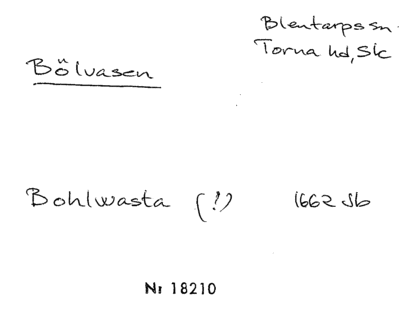 Blentarps sn
Torna hd, Sk
Bölvasen
Bohlwasta (!) 1662 Jb
Nr 18210